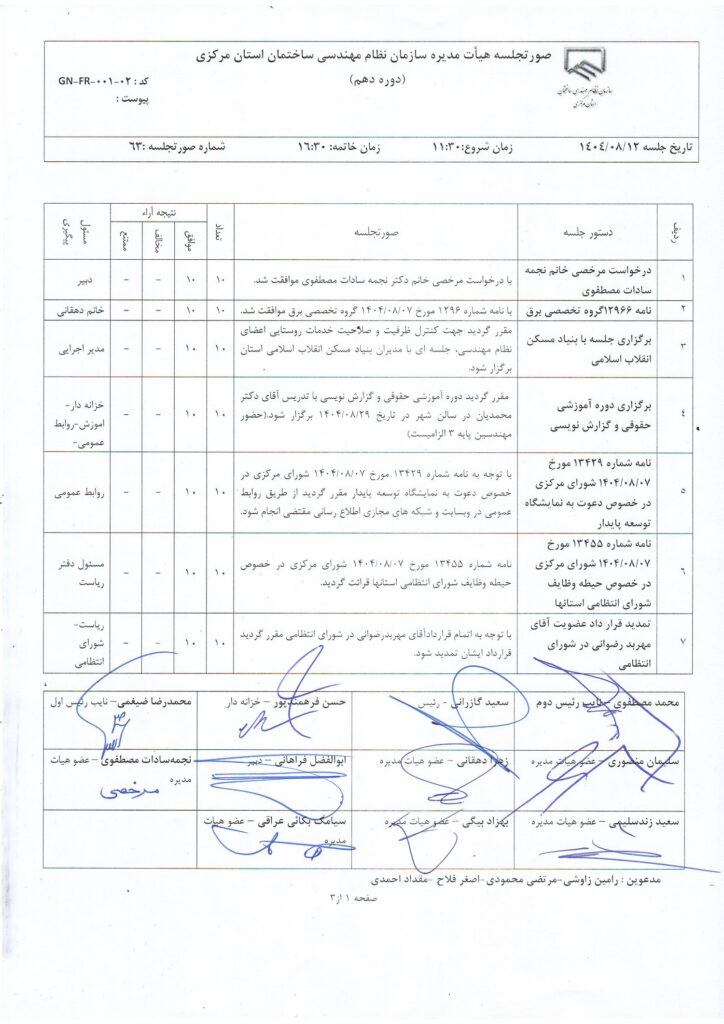 صورتجلسه هیأت مدیره سازمان نظام مهندسی ساختمان استان مرکزی
(دوره دهم)
سازمان نظام مهندسی ساختمان
استان مرکزی
کد : GN-FR-۰۰۱-۰۲
پیوست :
تاریخ جلسه ۱۴۰۴/۰۸/۱۲ زمان شروع:۱۱:۳۰ زمان خاتمه: ۱۶:۳۰ شماره صورتجلسه :۶۳
ردیف دستور جلسه صورتجلسه تعداد نتیجه آراء مسئول پیگیری
موافق مخالف ممتنع
۱
درخواست مرخصی خانم نجمه
سادات مصطفوی
با درخواست مرخصی خانم دکتر نجمه سادات مصطفوی موافقت شد.
۱۰ ۱۰ - - دبیر
۲
نامه ۱۲۹۶۶گروه تخصصی برق
با نامه شماره ۱۲۹۶ مورخ ۱۴۰۴/۰۸/۰۷ گروه تخصصی برق موافقت شد.
۱۰ ۱۰ - - خانم دهقانی
۳
برگزاری جلسه با بنیاد مسکن
انقلاب اسلامی
مقرر گردید جهت کنترل ظرفیت و صلاحیت خدمات روستایی اعضای
نظام مهندسی، جلسه ای با مدیران بنیاد مسکن انقلاب اسلامی استان
برگزار شود.
۱۰ ۱۰ - - مدیر اجرایی
۴
برگزاری دوره آموزشی
حقوقی و گزارش نویسی
مقرر گردید دوره آموزشی حقوقی و گزارش نویسی با تدریس آقای دکتر
محمدیان در سالن شهر در تاریخ ۱۴۰۴/۰۸/۲۹ برگزار شود.(حضور
مهندسین پایه ۳ الزامیست)
۱۰ ۱۰ - -
خزانه دار-
اموزش-روابط
عمومی-
۵
نامه شماره ۱۳۴۲۹ مورخ
۱۴۰۴/۰۸/۰۷ شورای مرکزی
در خصوص دعوت به نمایشگاه
توسعه پایدار
با توجه به نامه شماره ۱۳۴۲۹ مورخ ۱۴۰۴/۰۸/۰۷ شورای مرکزی در
خصوص دعوت به نمایشگاه توسعه پایدار مقرر گردید از طریق روابط
عمومی در وبسایت و شبکه های مجازی اطلاع رسانی مقتضی انجام شود.
۱۰ ۱۰ - - روابط عمومی
۶
نامه شماره ۱۳۴۵۵ مورخ
۱۴۰۴/۰۸/۰۷ شورای مرکزی
در خصوص حیطه وظایف
شورای انتظامی استانها
نامه شماره ۱۳۴۵۵ مورخ ۱۴۰۴/۰۸/۰۷ شورای مرکزی در خصوص
حیطه وظایف شورای انتظامی استانها قرائت گردید.
۱۰ ۱۰ - -
مسئول دفتر
ریاست
۷
تمدید قرار داد عضویت آقای
مهربد رضوانی در شورای
انتظامی
با توجه به اتمام قراردادآقای مهربدرضوانی در شورای انتظامی مقرر گردید
قرارداد ایشان تمدید شود.
۱۰ ۱۰ - -
ریاست-
شورای
انتظامی
محمد مصطفوی – نایب رئیس دوم سعید گازرانی - رئیس حسن فرهمندپور – خزانه دار محمدرضا ضیغمی – نایب رئیس اول
سلیمان منصوری – عضو هیات مدیره زهرا دهقانی – عضو هیات مدیره ابوالفضل فراهانی – دبیر نجمه‌سادات مصطفوی – عضو هیات
مدیره
مرخصی
سعید زندسلیمی – عضو هیات مدیره بهزاد بیگی – عضو هیات مدیره سیامک یکائی عراقی – عضو هیات
مدیره
مدعوین : رامین زاوشی-مرتضی محمودی-اصغر فلاح -مقداد احمدی
صفحه ۱ از۳